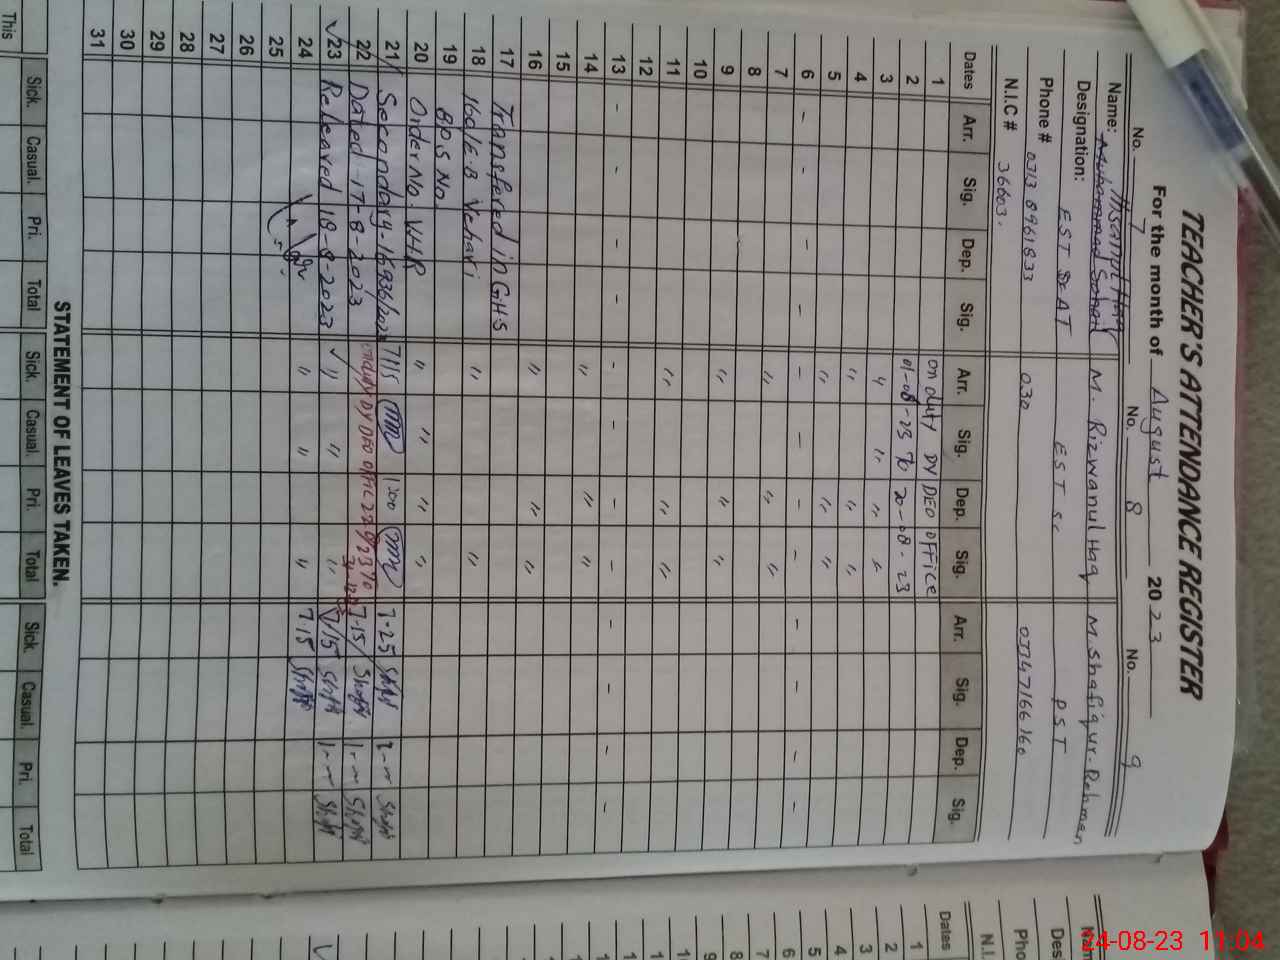 TEACHER'S ATTENDANCE REGISTER
For the month of August 2023
No. 7 No. 8 No. 9
Name: Ihsanul Haq M. Rizwanul Haq M. Shafiqur-Rehman
Muhammad Sohail
Designation: EST EST Sc PST
Phone # 0313 8961833 030 03347166160
N.I.C # 36603.
Dates Arr. Sig. Dep. Sig. Arr. Sig. Dep. Sig. Arr. Sig. Dep. Sig.
1 on duty by DEO OFFICE
2 01-08-23 to 20-08-23
3 " " " "
4 " " "
5 " " "
6 - - - - - - - - - - - -
7 " " "
8
9 " " "
10
11 " " "
12
13 - - - - - - - - - - - -
14 " " "
15
16 " " "
17 Transfered in GHS
18 160/E.B Vehari " "
19 BPS No.
20 Order No. VHR " " " "
21 Secondary-16936/2023 7115 1300 7-25
22 Dated 17-8-2023 onduty by DEO office 7-15
23 Releaved 18-8-2023 " " " 7/15
24 " " " 715
25
26
27
28
29
30
31
STATEMENT OF LEAVES TAKEN.
Sick. Casual. Pri. Total Sick. Casual. Pri. Total Sick. Casual. Pri. Total
This
Dates
1
2
3
4
5
6
7
8
9
N.I.
Pho
Des
24-08-23 11:04